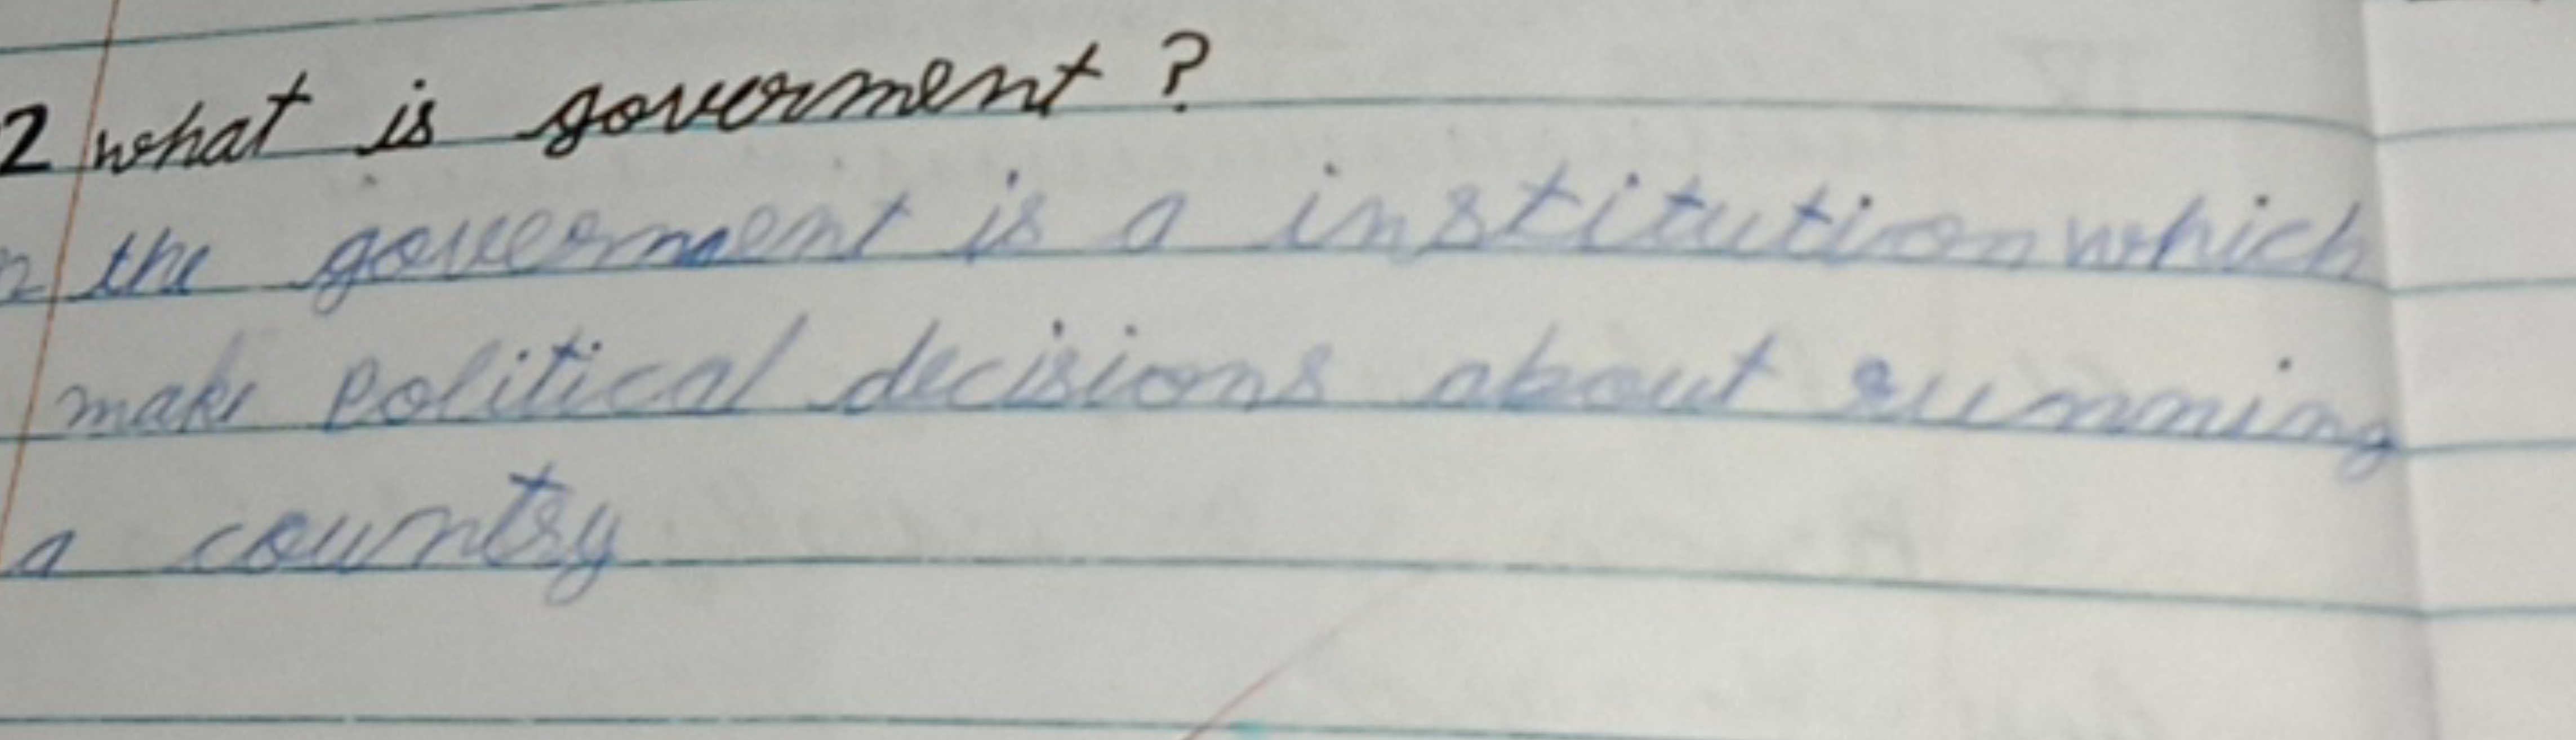 2 what is goverment ?
n the goverment is a institution which
make political decisions about running
a country